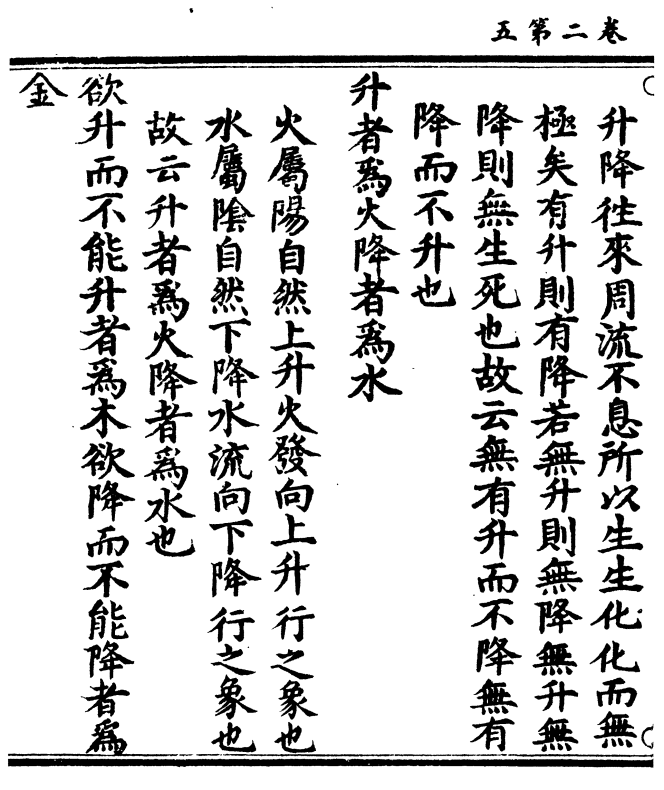 卷二第五
升降徃來周流不息所以生生化化而無
極矣有升則有降若無升則無降無升無
降則無生死也故云無有升而不降無有
降而不升也
升者爲火降者爲水
火屬陽自然上升火發向上升行之象也
水屬陰自然下降水流向下降行之象也
故云升者爲火降者爲水也
欲升而不能升者爲木欲降而不能降者爲
金